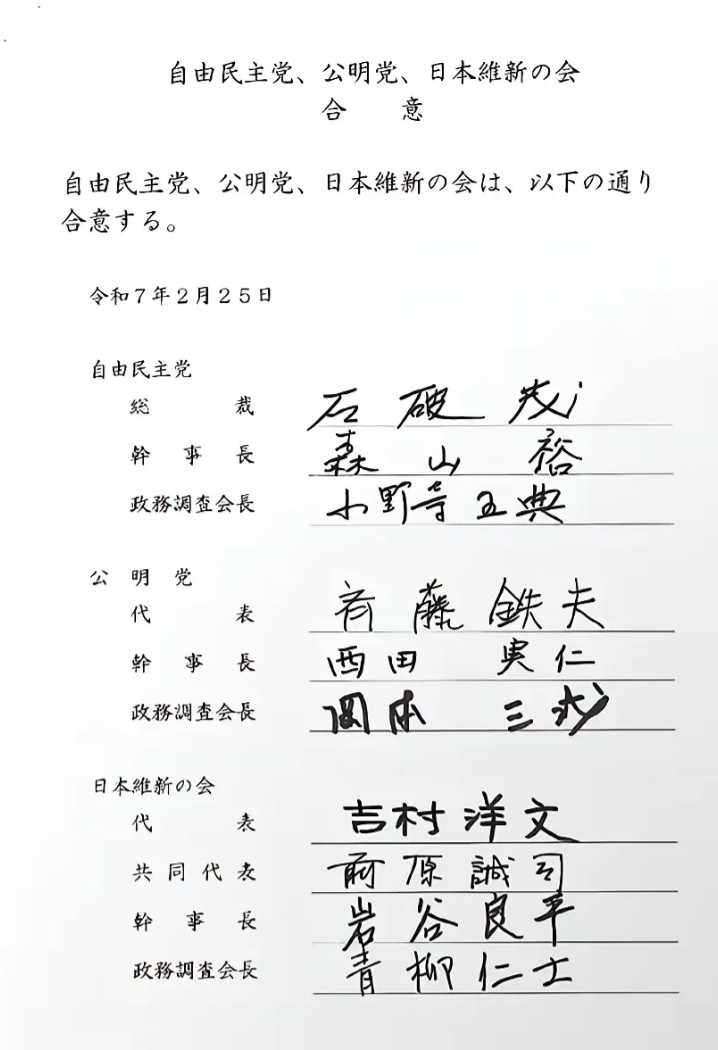 自由民主党、公明党、日本維新の会
合　　意
自由民主党、公明党、日本維新の会は、以下の通り
合意する。
令和７年２月２５日
自由民主党
総　　裁　石破茂
幹　事　長　森山　裕
政務調査会長　小野寺五典
公　明　党
代　　表　斉藤鉄夫
幹　事　長　西田　実仁
政務調査会長　岡本　三成
日本維新の会
代　　表　吉村洋文
共同代表　前原誠司
幹　事　長　岩谷良平
政務調査会長　青柳仁士